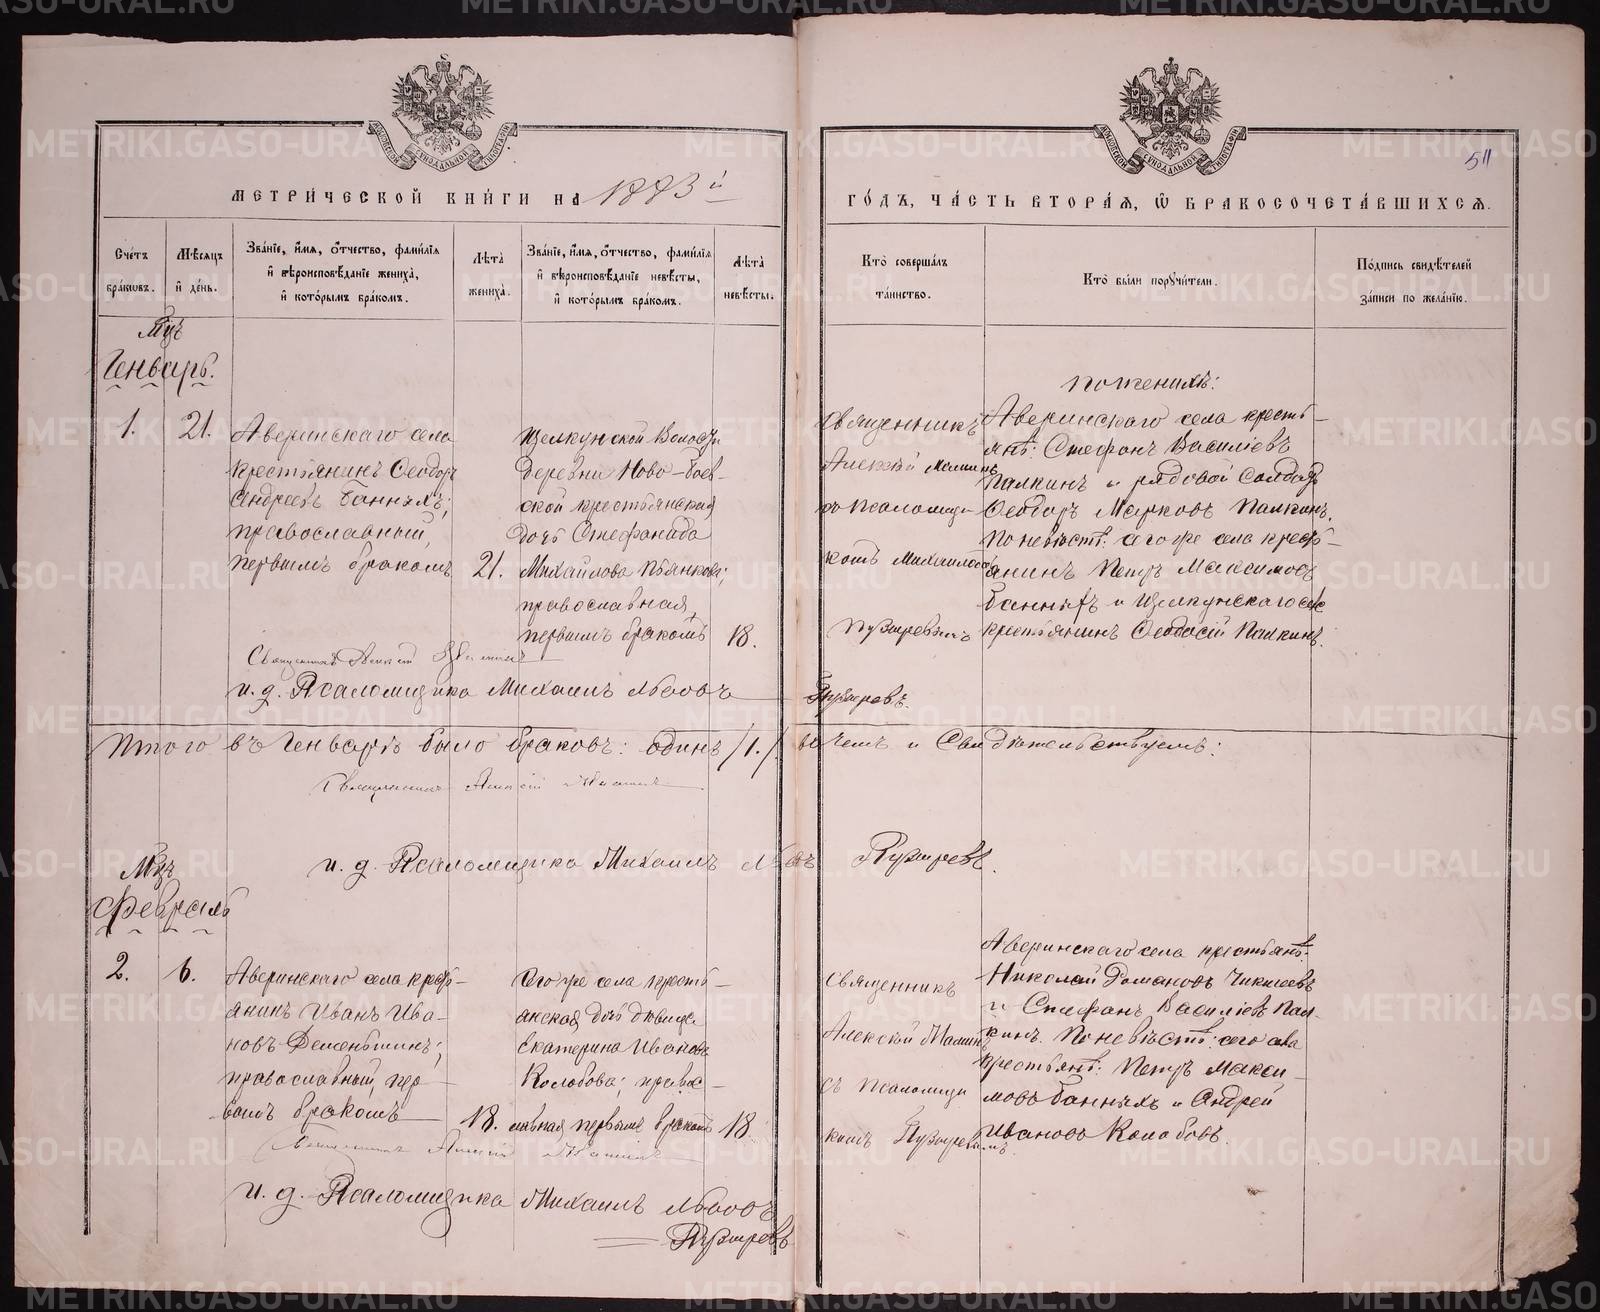 МЕТРИ́ЧЕСКОЙ КНИ́ГИ НА 1883 й
ГО́ДЪ, ЧА́СТЬ ВТОРА́Я, Ѽ БРАКОСОЧЕТА́ВШИХСЯ.
511
Сче́тъ бра́кѡвъ.
Мѣ́сяцъ и де́нь.
Зва́нїе, и́мя, ѻ́тчество, фами́лїя и вѣроисповѣ́данїе жениха̀, и кото́рымъ бра́комъ.
Лѣта̀ жениха̀.
Зва́нїе, и́мя, ѻ́тчество, фами́лїя и вѣроисповѣ́данїе невѣ́сты, и кото́рымъ бра́комъ.
Лѣта̀ невѣ́сты.
Кто̀ соверша́лъ та́инство.
Кто̀ бы́ли порꙋчи́тели.
По́дпись свидѣ́телей за́писи по жела́нїю.
Мцъ
Генварь.
1.
21.
Аверинскаго села
крестьянинъ Ѳеодоръ
Андреевъ Банныхъ;
православный,
первымъ бракомъ
21.
Щелкунской Волости
деревни Ново-
ской крестьянская
дочь Стефанида
Михайлова Пьянкова;
православная,
первымъ бракомъ
18.
Священникъ
Алексій
съ Псаломщи
комъ Михаиломъ
Пузыревымъ
По женихѣ:
Аверинскаго села кресть-
янѣ: Стефанъ Василіевъ
Палкинъ и рядовой Солдатъ
Ѳеодоръ Марковъ Палкинъ.
По невѣстѣ: того же села кресть-
янинъ Петръ Максимовъ
Банныхъ и Щелкунскаго села
крестьянинъ Ѳеодосій Палкинъ.
Священникъ Алексій
и. д. Псаломщика Михаилъ Львовъ Пузыревъ.
Итого въ Генварѣ было браковъ: одинъ /1./ въ чемъ и Свидѣтельствуемъ:
Священникъ Алексій
и. д. Псаломщика Михаилъ Львовъ Пузыревъ.
Мцъ
Февраль
2.
6.
Аверинскаго села кресть-
янинъ Иванъ Ива-
новъ Деменьшинъ;
православный, пер-
вымъ бракомъ
18.
Того же села кресть-
янская дочь дѣвица
Екатерина Иванова
Колобова; правос-
лавная, первымъ бракомъ
18.
Священникъ
Алексій
съ Псаломщи
комъ Пузыревымъ
Аверинскаго села крестьянѣ:
Николай Романовъ
и Стефанъ Василіевъ Пал-
кинъ. По невѣстѣ: того села
крестьянѣ: Петръ Макси-
мовъ Банныхъ и Андрей
Ивановъ Колобовъ.
Священникъ Алексій
и. д. Псаломщика Михаилъ Львовъ
Пузыревъ